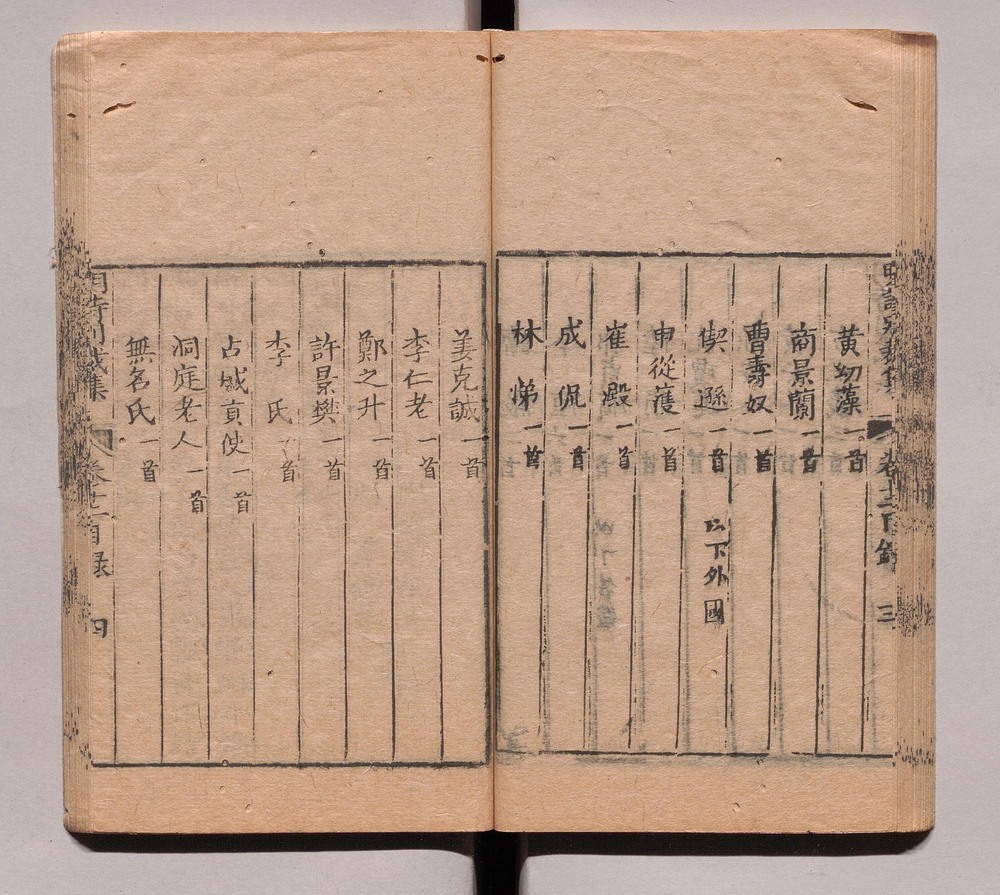 黄幼藻一首
商景蘭一首
曹壽奴一首
偰遜一首 以下外國
申從濩一首
崔澱一首
成侃一首
林悌一首
卷十二目錄 三
姜克誠一首
李仁老一首
鄭之升一首
許景樊一首
李氏一首
占城貢使一首
洞庭老人一首
無名氏一首
明詩別裁集 卷十二目錄 四